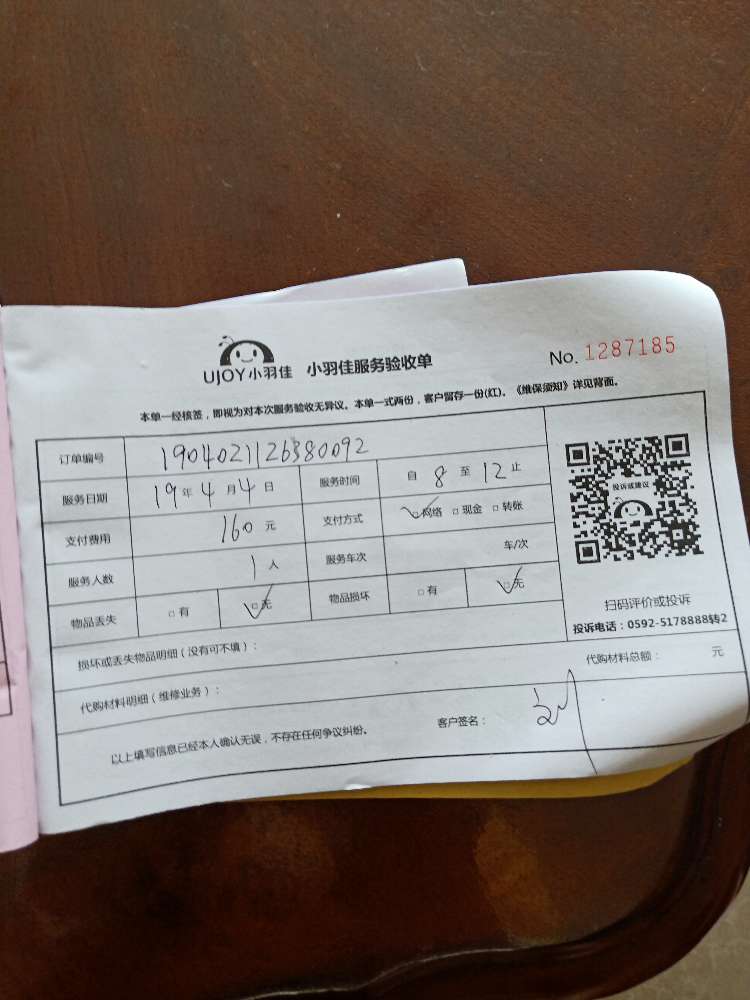 UJOY小羽佳 小羽佳服务验收单 No. 1287185
本单一经核签，即视为对本次服务验收无异议。本单一式两份，客户留存一份(红)。《维保须知》详见背面。
订单编号 1904021126380092
服务日期 19年4月4日 服务时间 自8至12止
支付费用 160元 支付方式 ☑网络 □现金 □转账
服务人数 1人 服务车次 车/次
物品丢失 □有 ☑无 物品损坏 □有 ☑无
投诉或建议
扫码评价或投诉
投诉电话：0592-5178888转2
损坏或丢失物品明细（没有可不填）：
代购材料明细（维修业务）： 代购材料总额： 元
以上填写信息已经本人确认无误，不存在任何争议纠纷。 客户签名：